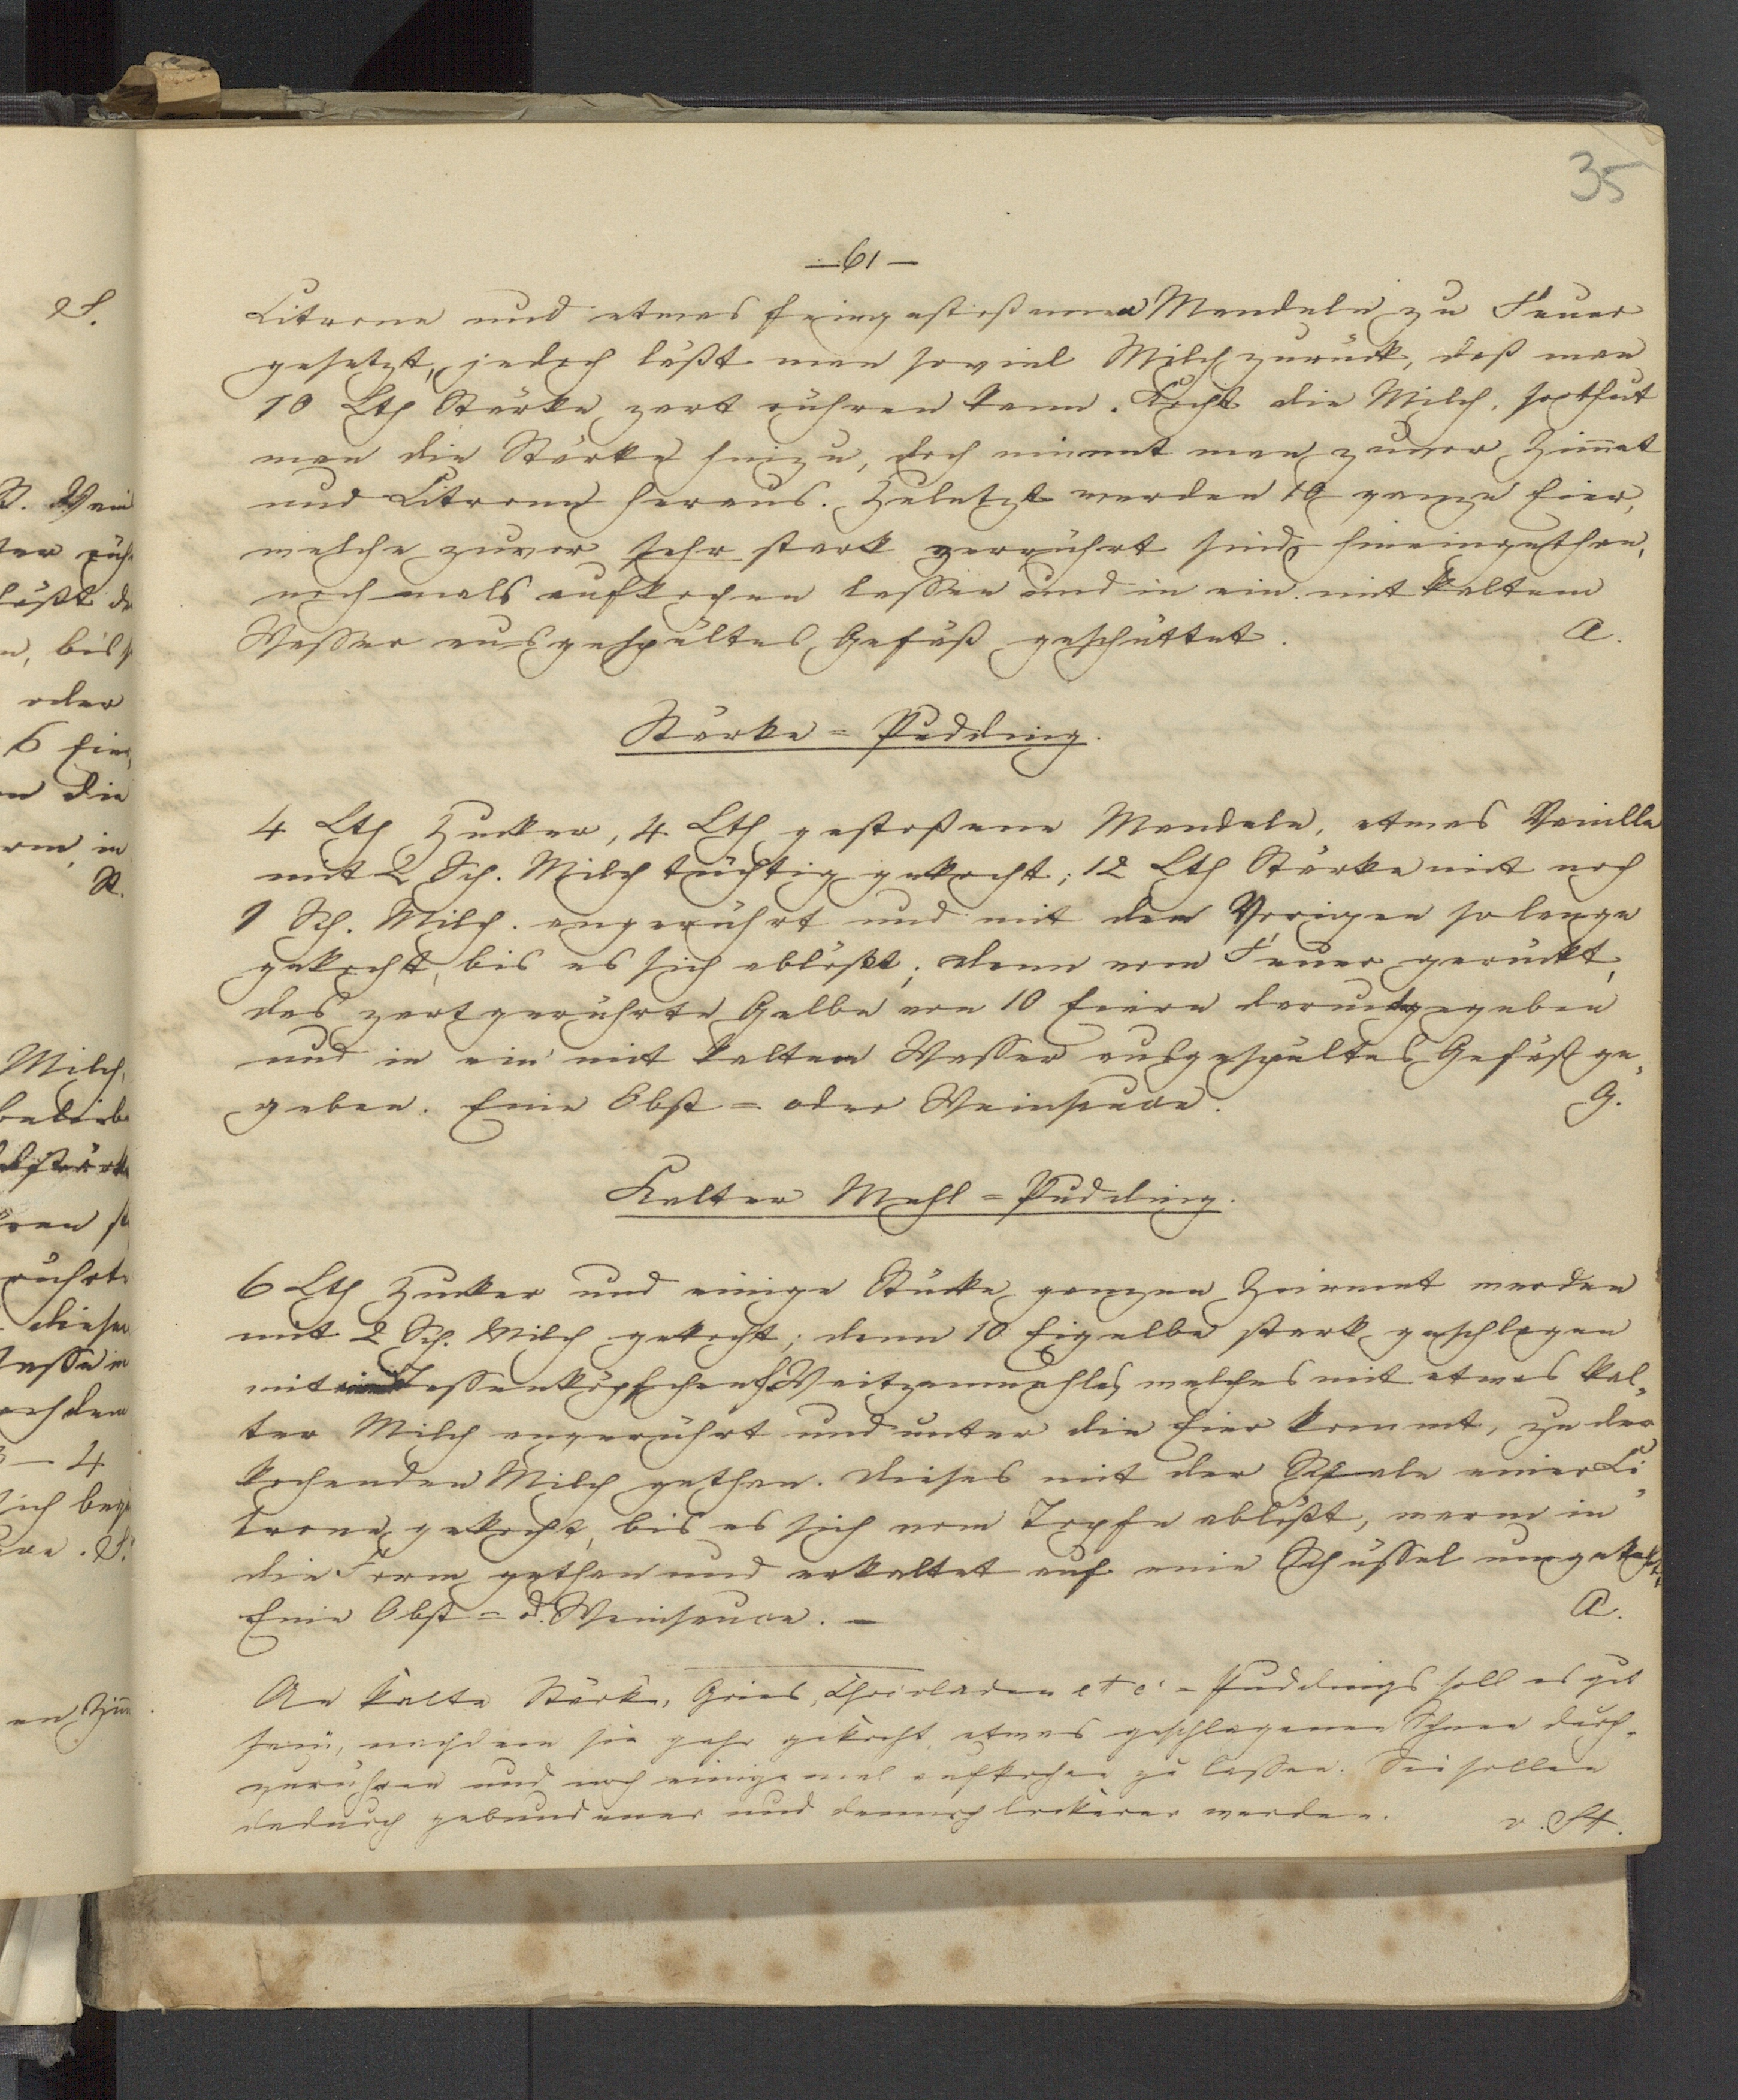 35
— 61 —
Citrone und etwas feingestoßenen Mandeln zu Feuer
gesetzt, jedoch läßt man soviel Milch zurück, daß man
10 Lth Stärke zart rühren kann. Kocht die Milch, so thut
man die Stärke hinzu, doch nimmt man zuvor Zimmt
und Citrone heraus. Zuletzt werden 10 ganze Eier,
welche zuvor sehr stark zerrührt sind, hineingethan,
nochmals aufkochen lassen und in ein mit kaltem
Wasser ausgespültes Gefäß geschüttet. A.
Stärke = Pudding.
4 Lth Zucker, 4 Lth gestoßene Mandeln, etwas Vanille
mit 2 Sch. Milch tüchtig gekocht; 12 Lth Stärke mit noch
1 Sch. Milch angerührt und mit dem Vorigen so lange
gekocht, bis es sich ablößt; dann vom Feuer gerückt,
das zartgerührte Gelbe von 10 Eiern darunter gegeben
und in ein mit kaltem Wasser ausgespültes Gefäß ge„
geben. Eine Obst = oder Weinsauce. G.
Kalter Mehl = Pudding.
6 Lth Zucker und einige Stücke ganzen Zimmt werden
mit 2 Sch. Milch gekocht; dann 10 Eigelbe stark geschlagen
mit Tassenköpfchen Weitzenmehles, welches mit etwas kal„
ter Milch angerührt und unter die Eier kommt, zu der
kochenden Milch gethan. Dieses mit der Schale einer Ci„
trone gekocht, bis es sich vom Topfe ablößt, warm in
die Form gethan und erkaltet auf eine Schüssel umgekehrt.
Eine Obst = o. Weinsauce. — A.
An kalte Stärke, Gries, Chocoladen etc = Puddings soll es gut
sein, nachdem sie gahr gekocht, etwas geschlagenen Schnee durch„
zurühren und noch einigemal aufkochen zu lassen. Sie sollen
dadurch gebundener und dennoch lockerer werden. v. St.